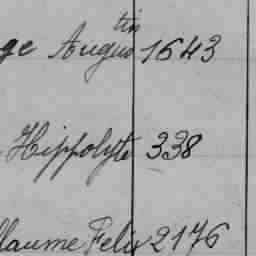 ge Augustin 1643
Hippolyte 338
llaume Felix 2176